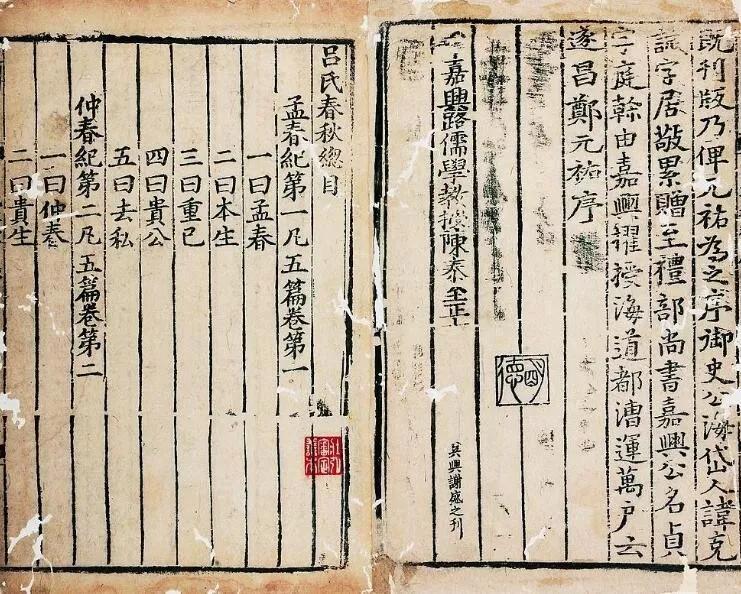 既刊版乃俾元祐為之序御史公海岱人諱克
字居敬累贈至禮部尚書嘉興公名貞
字庭幹由嘉興擢授海道都漕運萬戶云
遂昌鄭元祐序
嘉興路儒學教授陳泰至正
吳興謝盛之刊
呂氏春秋總目
孟春紀第一凡五篇卷第一
一曰孟春
二曰本生
三曰重己
四曰貴公
五曰去私
仲春紀第二凡五篇卷第二
一曰仲春
二曰貴生